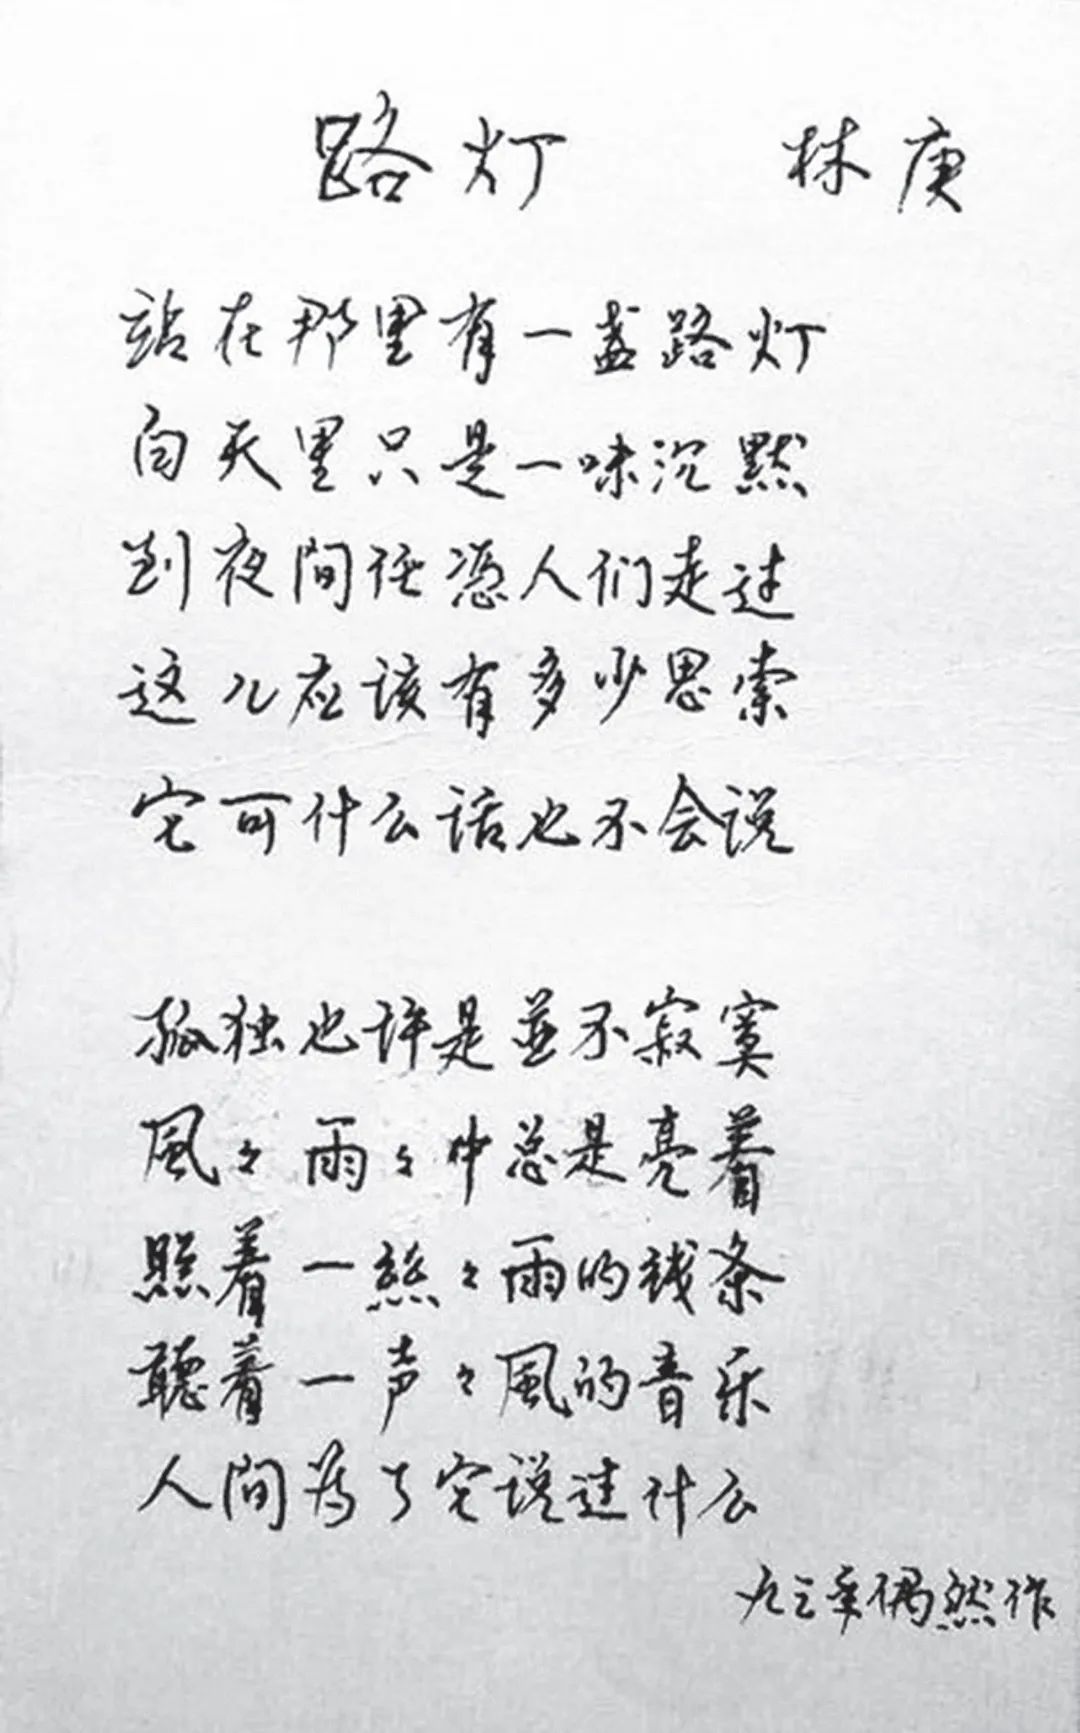 路灯 林庚
站在那里有一盏路灯
白天里只是一味沉默
到夜间任凭人们走过
这儿应该有多少思索
它可什么话也不会说
孤独也许是並不寂寞
風々雨々中总是亮着
照着一絲々雨的线条
聽着一声々風的音乐
人间为了它说过什么
九三年偶然作